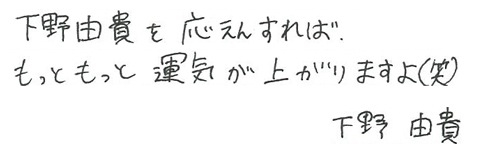 下野由貴を応えんすれば、
もっともっと運気が上がりますよ(笑)
下野 由貴